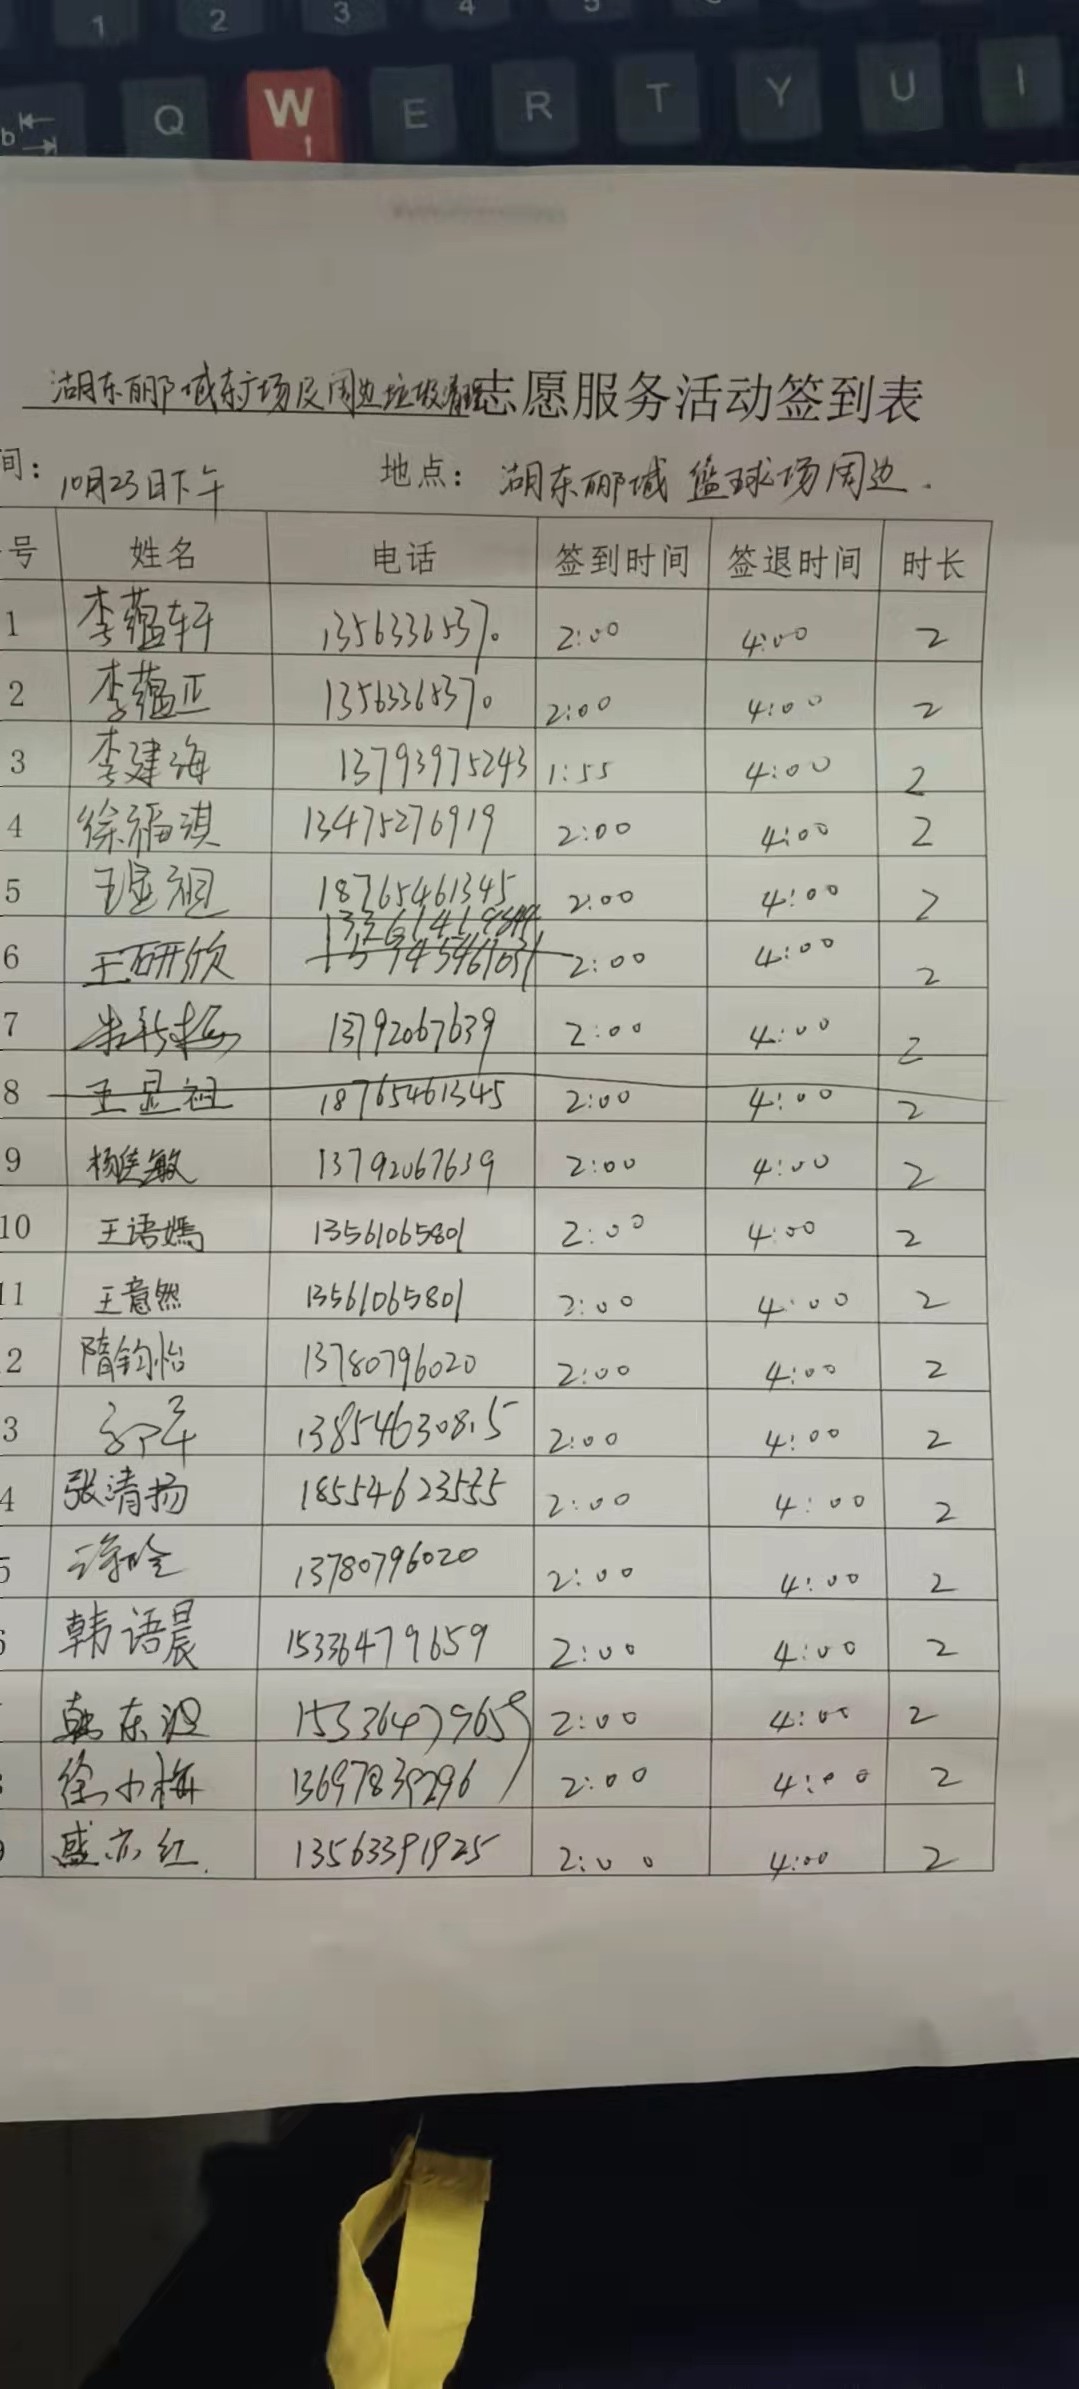 1 2 3 4 5
b Q W E R T Y U I
1
湖东丽城东广场及周边垃圾清理志愿服务活动签到表
间: 10月23日下午 地点: 湖东丽城 篮球场周边.
号 姓名 电话 签到时间 签退时间 时长
1 李蕴轩 13563365370 2:00 4:00 2
2 李蕴正 13563365370 2:00 4:00 2
3 李建海 13793975243 1:55 4:00 2
4 徐福淇 13475276919 2:00 4:00 2
5 王显祖 18765461345 2:00 4:00 2
6 王研欣 2:00 4:00 2
7 13792067639 2:00 4:00 2
8 王显祖 18765461345 2:00 4:00 2
9 杨佳敏 13792067639 2:00 4:00 2
10 王语嫣 13561065801 2:00 4:00 2
11 王意然 13561065801 2:00 4:00 2
2 隋钧怡 13780796020 2:00 4:00 2
3 13854630815 2:00 4:00 2
4 张清扬 18554623555 2:00 4:00 2
5 13780796020 2:00 4:00 2
6 韩语晨 15336479659 2:00 4:00 2
韩东波 15336479659 2:00 4:00 2
徐小梅 13697839296 2:00 4:00 2
盛亦红 13563391925 2:00 4:00 2